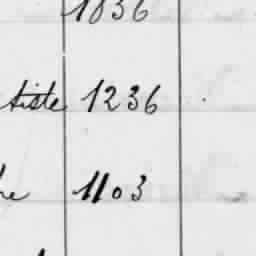 1836
tiste 1236
he 1103